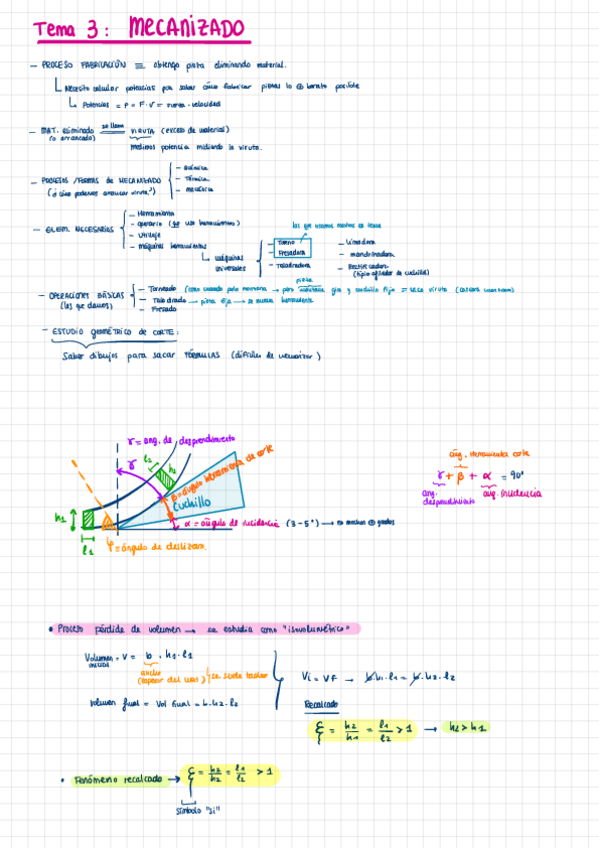 Tema 3: MECANIZADO
- PROCESO FABRICACIÓN ≡ obtengo pieza eliminando material.
Necesito calcular potencias para saber cómo fabricar piezas lo ⊕ barato posible
Potencias = P = F · V = fuerza · velocidad
- MAT. eliminado se llama VIRUTA (exceso de material)
(o arrancado)
medimos potencia midiendo la viruta.
- PROCESOS / FORMAS de MECANIZADO
(ó cómo podemos arrancar viruta?)
- Química
- Térmica
- Mecánica
- ELEM. NECESARIOS
- Herramienta
- operario (que usa herramientas)
- Utillaje
- Máquinas herramientas
máquinas universales
- Torno
- Fresadora
- Taladradora
- Limadora
- mandrinadora
- Rectificadora
(tipo afilador de cuchillo)
- OPERACIONES BÁSICAS
(las que damos)
- Torneado
- Taladrado → pieza fija → se mueve herramienta
- Fresado
- ESTUDIO GEOMÉTRICO DE CORTE:
Saber dibujos para sacar FÓRMULAS (difíciles de memorizar)
γ = ang. de desprendimiento
γ
l2
h2
β = ángulo herramienta de corte
Cuchillo
h1
l1
α = ángulo de incidencia (3-5°) → no muchos ⊕ grados
φ = ángulo de desliza.
áng. herramienta corte
γ + β + α = 90°
ang. desprendimiento
áng. incidencia
• Proceso pérdida de volumen → se estudia como "isovolumétrico"
Volumen inicial = V = b · h1 · l1
ancho
se suele tachar
Volumen final = Vol final = b · h2 · l2
Vi = VF → b · h1 · l1 = b · h2 · l2
Recalcado
ξ = h2/h1 = l1/l2 > 1 → h2 > h1
• Fenómeno recalcado → ξ = h2/h2 = l1/l2 > 1
símbolo "xi"